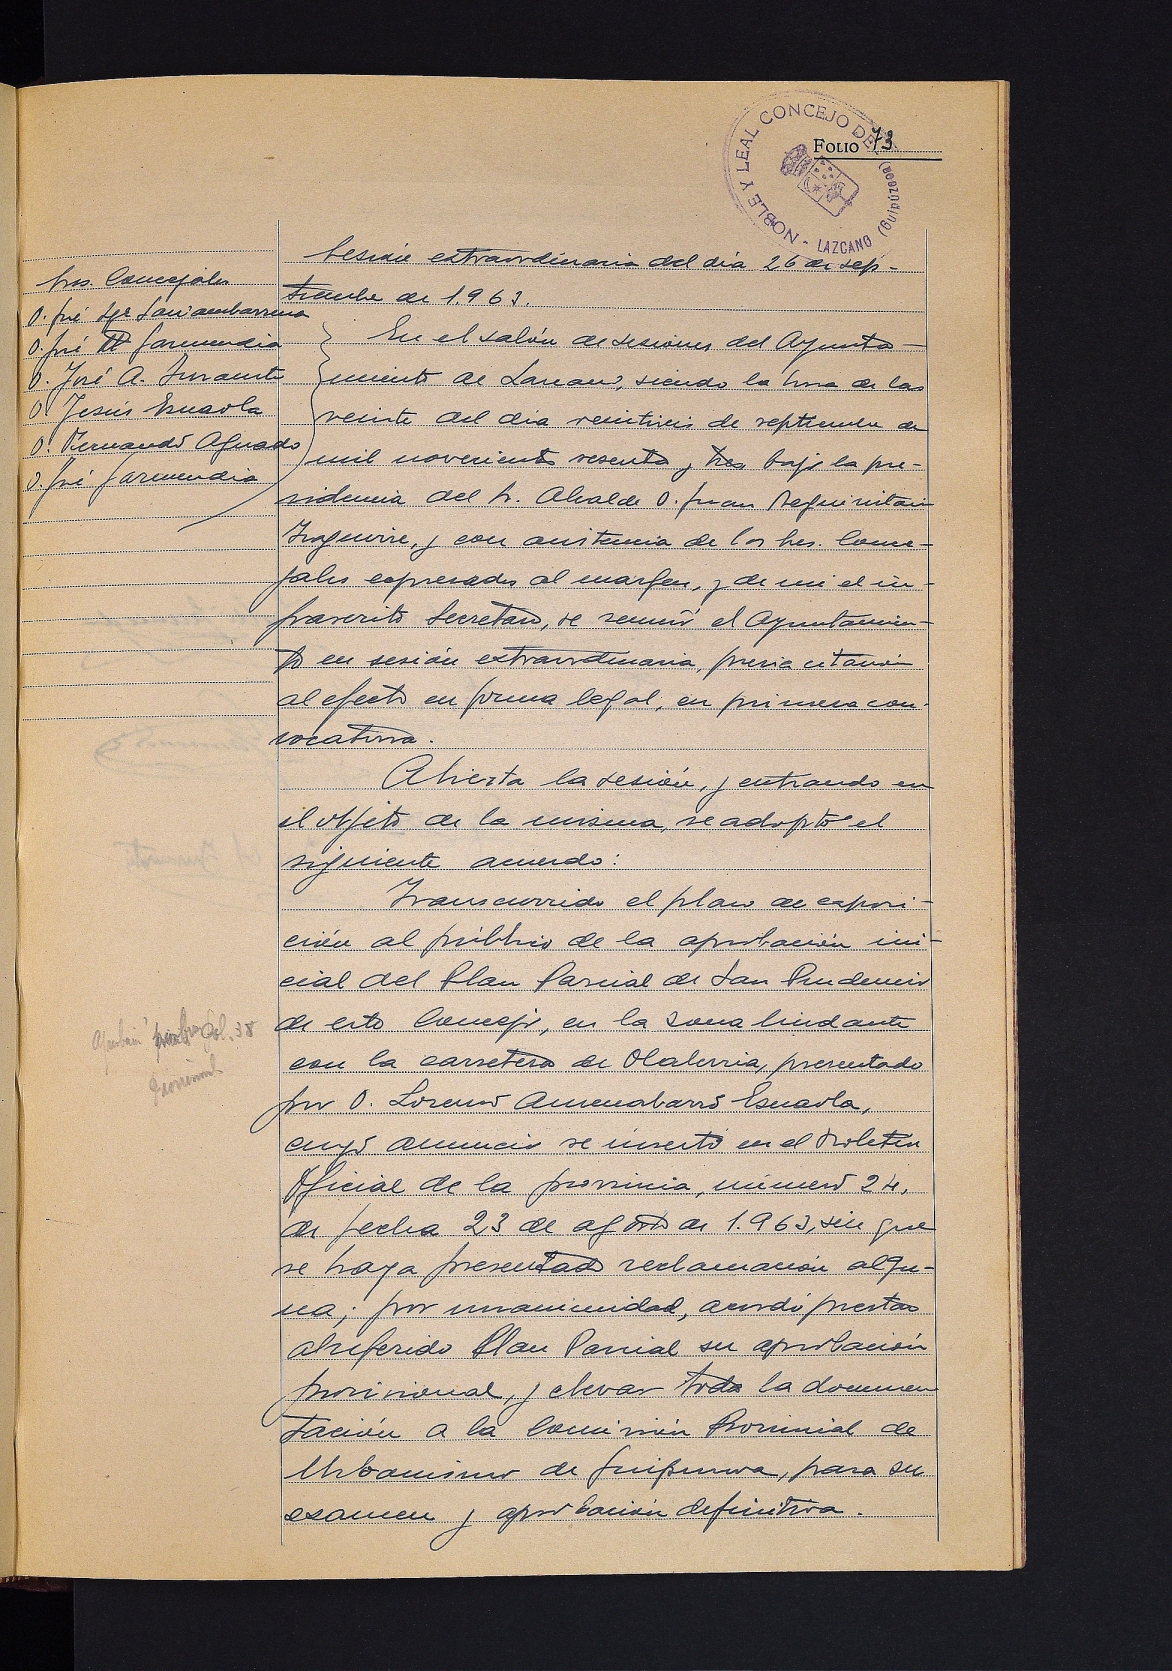 NOBLE Y LEAL CONCEJO DE
LAZCANO (Guipúzcoa)
FOLIO 73
Sesión extraordinaria del dia 26 de sep-
tiembre de 1.963.
Sres. Concejales
D. José
D. José Garmendia
D. José A. Iturrate
D. Jesús Esnaola
D. Fernando Aguado
D. José Garmendia
En el salón de sesiones del Ayunta-
miento de Lazcano, siendo la hora de las
veinte del dia veintiseis de septiembre de
mil novecientos sesenta y tres bajo la pre-
sidencia del Sr. Alcalde D. Juan
Izaguirre, y con asistencia de los Sres. Conce-
jales expresados al margen, y de mi el in-
frascrito Secretario, se reunió el Ayuntamien-
to en sesión extraordinaria, previa citación
al efecto en forma legal, en primera con-
vocatoria.
Abierta la sesión, y entrando en
el objeto de la misma, se adoptó el
siguiente acuerdo:
Transcurrido el plazo de exposi-
ción al público de la aprobación ini-
cial del Plan Parcial de San Prudencio
de este Concejo, en la zona lindante
con la carretera de Olaberria, presentado
por D. Lorenzo Amenabarro Esnaola,
cuyo anuncio se insertó en el Boletin
Oficial de la provincia, número 24,
de fecha 23 de agosto de 1.963, sin que
se haya presentado reclamación algu-
na; por unanimidad, acordó prestar
al referido Plan Parcial su aprobación
provisional, y elevar toda la documen
tación a la Comisión Provincial de
Urbanismo de Guipuzcoa, para su
examen y aprobación definitiva.
fol. 38